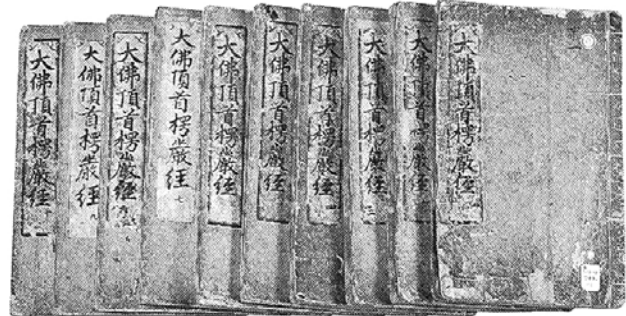 大佛頂首楞嚴經
大佛頂首楞嚴經
大佛頂首楞嚴經
大佛頂首楞嚴經
大佛頂首楞嚴經 七
大佛頂首楞嚴經
大佛頂首楞嚴經
大佛頂首楞嚴經
大佛頂首楞嚴經
大佛頂首楞嚴經